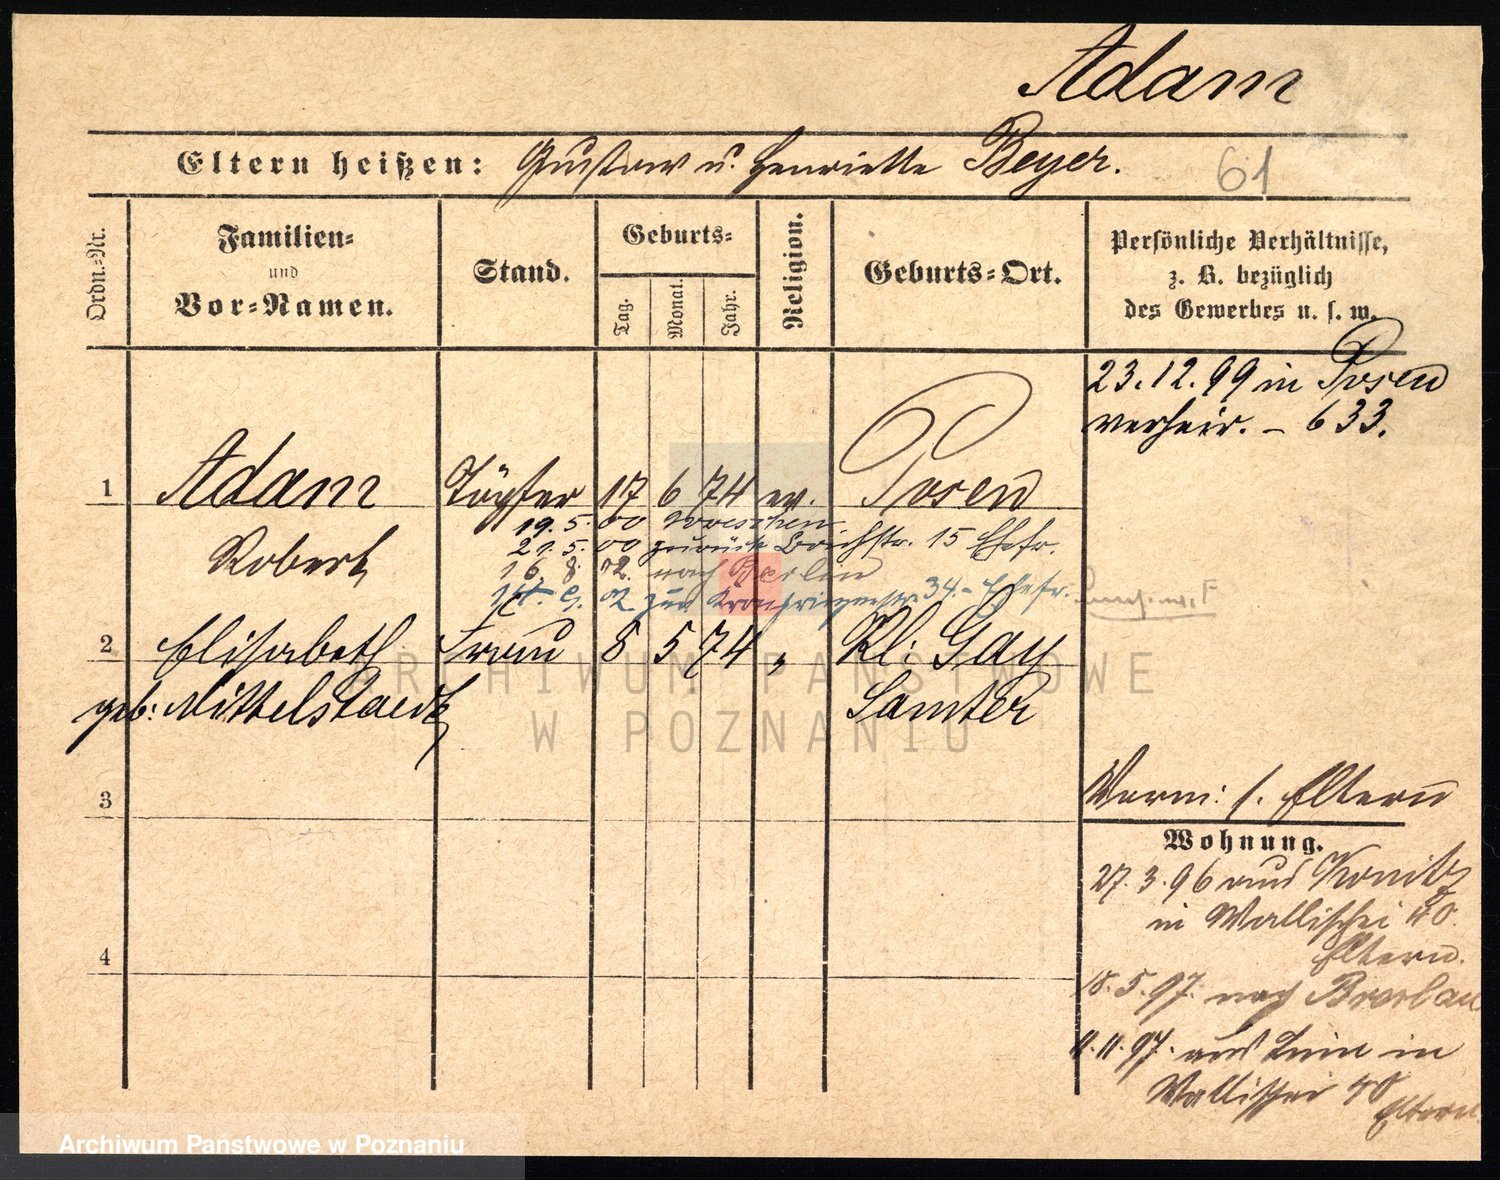 Adam
Eltern heißen: Gustav u. Henriette Beyer.
61
Ordn.-Nr.
Familien- und Vor-Namen.
Stand.
Geburts-
Tag.
Monat.
Jahr.
Religion.
Geburts-Ort.
Persönliche Verhältnisse,
z. B. bezüglich
des Gewerbes u. s. w.
23.12.99 in Posen
verheir. - 633.
1 Adam Töpfer 17 6 74 ev. Posen
19. 5. 00 Wreschen
Robert 21. 5. 00 zurück 15 Ehefr.
16. 8. 02. nach Berlin
02 34. - Ehefr.
2 Elisabeth Frau 8 5 74 " Kl: Gay
geb: Mittelstaedt Samter
3
4
Vorm: s. Eltern
Wohnung.
27. 3. 96 aus Konitz
in Wallischei 40
Eltern.
18. 5. 97. nach Breslau
11. 11. 97. aus in
Wallischei 40
Eltern
ARCHIWUM PAŃSTWOWE
W POZNANIU
Archiwum Państwowe w Poznaniu